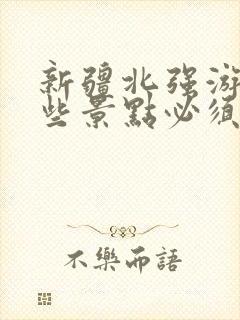 新疆北强游
些景點必须
不樂而語